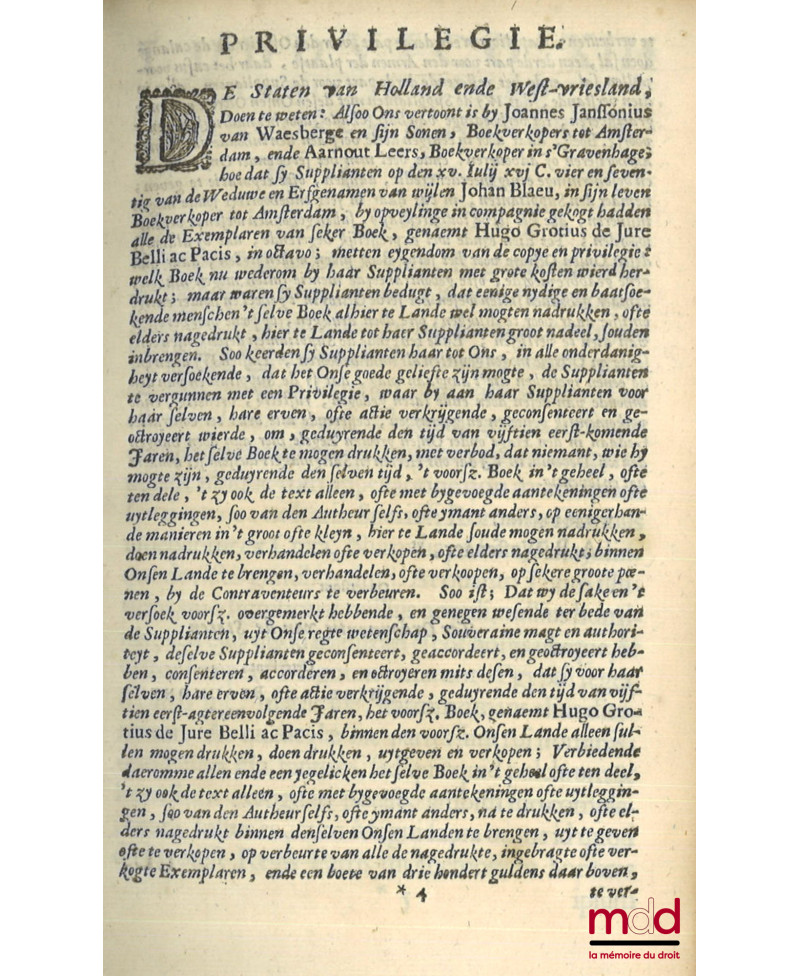 PRIVILEGIE.
DE Staten van Holland ende West-vriesland,
Doen te weten: Alsoo Ons vertoont is by Joannes Janssonius
van Waesberge en sijn Sonen, Boekverkopers tot Amster-
dam, ende Aarnout Leers, Boekverkoper in s'Gravenhage;
hoe dat sy Supplianten op den xv. Iulij xvj C. vier en seven-
tig van de Weduwe en Erfgenamen van wijlen Johan Blaeu, in sijn leven
Boekverkoper tot Amsterdam, by opveylinge in compagnie gekogt hadden
alle de Exemplaren van seker Boek, genaemt Hugo Grotius de Jure
Belli ac Pacis, in octavo; metten eygendom van de copye en privilegie:
welk Boek nu wederom by haar Supplianten met grote kosten wierd her-
drukt; maar waren sy Supplianten bedugt, dat eenige nydige en baatsoe-
kende menschen 't selve Boek alhier te Lande wel mogten nadrukken, ofte
elders nagedrukt, hier te Lande tot haer Supplianten groot nadeel, souden
inbrengen. Soo keerden sy Supplianten haar tot Ons, in alle onderdanig-
heyt versoekende, dat het Onse goede geliefte zijn mogte, de Supplianten
te vergunnen met een Privilegie, waar by aan haar Supplianten voor
haar selven, hare erven, ofte actie verkrijgende, geconsenteert en ge-
octroyeert wierde, om, geduyrende den tijd van vijftien eerst-komende
Jaren, het selve Boek te mogen drukken, met verbod, dat niemant, wie hy
mogte zijn, geduyrende den selven tijd, 't voorsz. Boek in 't geheel, ofte
ten dele, 't zy ook de text alleen, ofte met bygevoegde aantekeningen ofte
uytleggingen, soo van den Autheur selfs, ofte ymant anders, op eenigerhan-
de manieren in 't groot ofte kleyn, hier te Lande soude mogen nadrukken,
doen nadrukken, verhandelen ofte verkopen, ofte elders nagedrukt; binnen
Onsen Lande te brengen, verhandelen, ofte verkoopen, op sekere groote pœ-
nen, by de Contraventeurs te verbeuren. Soo ist; Dat wy de sake en 't
versoek voorsz. overgemerkt hebbende, en genegen wesende ter bede van
de Supplianten, uyt Onse regte wetenschap, Souveraine magt en authori-
teyt, deselve Supplianten geconsenteert, geaccordeert, en geoctroyeert heb-
ben, consenteren, accorderen, en octroyeren mits desen, dat sy voor haar
selven, hare erven, ofte actie verkrijgende, geduyrende den tijd van vijf-
tien eerst-agtereenvolgende Jaren, het voorsz. Boek, genaemt Hugo Gro-
tius de Jure Belli ac Pacis, binnen den voorsz. Onsen Lande alleen sul-
len mogen drukken, doen drukken, uytgeven en verkopen; Verbiedende
daeromme allen ende een yegelicken het selve Boek in 't geheel ofte ten deel,
't zy ook de text alleen, ofte met bygevoegde aantekeningen ofte uytleggin-
gen, soo van den Autheur selfs, ofte ymant anders, na te drukken, ofte el-
ders nagedrukt binnen denselven Onsen Landen te brengen, uyt te geven
ofte te verkopen, op verbeurte van alle de nagedrukte, ingebragte ofte ver-
kogte Exemplaren, ende een boete van drie hondert guldens daar boven,
* 4 te ver-
mdd
la mémoire du droit